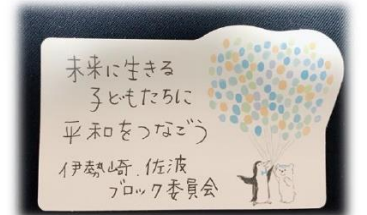 未来に生きる
子どもたちに
平和をつなごう
伊勢崎.佐波
ブロック委員会